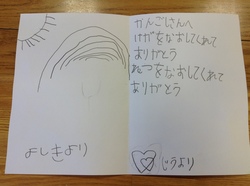 かんごしさんへ
けがをなおしてくれて
ありがとう
ねつをなおしてくれて
ありがとう
よしきより
じうより